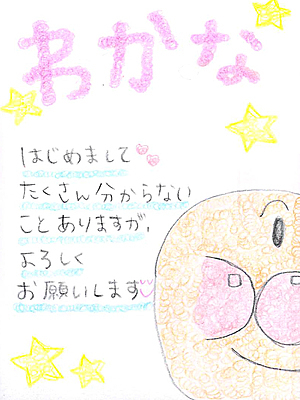 わかな
はじめまして
たくさん分からない
ことありますが、
よろしく
お願いします